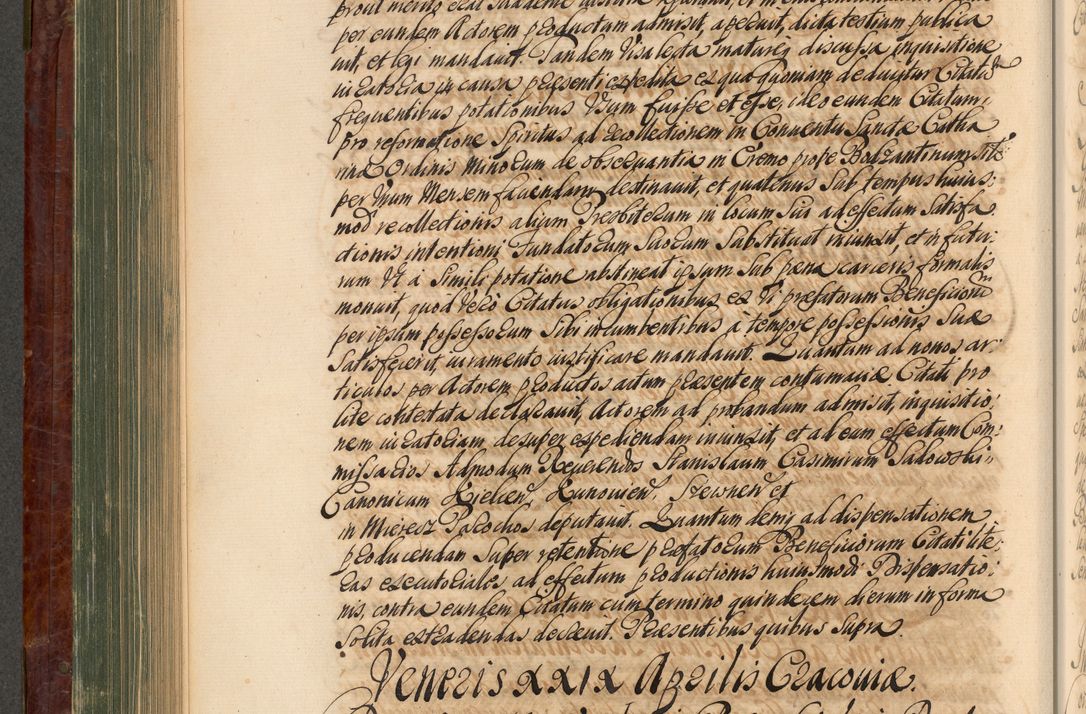 per eundem Actorem productum admisit, aperuit, dicta testium publica
uit, et legi mandauit. Tandem Visa lecta matureq discussa inquisitione
iuratoria in causa praesenti expedita ex qua quoniam deducitur Citatū
frequentibus potationibus Usum fuisse et esse, ideo eundem Citatum
pro reformatione Spiritus ad recollectionem in Conuentu Sanctae Catha
rinae Ordinis Minorum de obseruantia in Eremo prope Bodzantinum Sitē
per Unum Mensem faciendam destinauit, et quatenus Sub tempus huius:
modi recollectionis alium Presbiterum in locum Sui ad effectum Satisfa:
ctionis intentioni Fundatorum Suorum Substituat iniunxit, et in futu:
rum Ut a Simili potatione abstineat ipsum Sub paena carceris formalis
monuit, quod Vero Citatus obligationibus ex Vi praefatorum Beneficiorū
per ipsum possessorum Sibi incumbentibus, à tempore possessionis Suae
Satisfecerit, iuramento iustificare mandauit. Quantum ad nonos ar:
ticulos per Actorem productos actum praesentem contumaciae Citati pro
lite contestata declarauit, Actorem ad probandum admisit, inquisitio:
nem iuratoriam desuper expediendam iniunxit, et ad eum effectum Com:
missarios Admodum Reuerendos Stanislaum Casimirum Sadowski
Canonicum Kielcen, Kunouien, Stewnen et
in Mierzc Parochos deputauit. Quantum demq ad dispensationem
producendam Super retentione praefatorum Beneficiorum Citati lite:
ras executoriales ad effectum productionis huiusmodi Dispensatio:
nis, contra eundem Citatum cum termino quindecem dierum in forma
Solita extradendas decreuit. Praesentibus quibus Supra.
Veneris XXIX Aprilis Cracouiae.